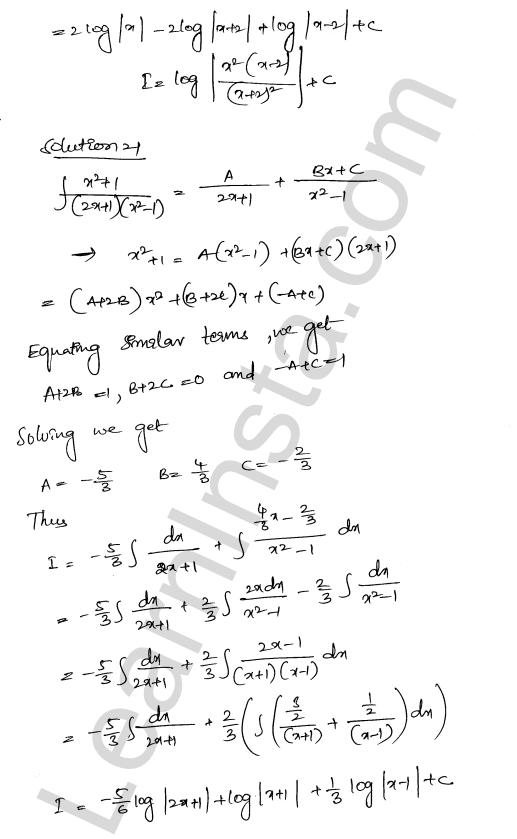 = 2 log |x| - 2 log |x+2| + log |x-2| + C
I = log | x²(x-2) / (x+2)² | + C
Solution 21
∫ x²+1 / (2x+1)(x²-1) = A / 2x+1 + Bx+C / x²-1
→ x²+1 = A(x²-1) + (Bx+C)(2x+1)
= (A+2B)x² + (B+2C)x + (-A+C)
Equating similar terms, we get
A+2B = 1, B+2C = 0 and -A+C = 1
Solving we get
A = -5/3 B = 4/3 C = -2/3
Thus
I = -5/3 ∫ dx / 2x+1 + ∫ 4/3 x - 2/3 / x²-1 dx
= -5/3 ∫ dx / 2x+1 + 2/3 ∫ 2x dx / x²-1 - 2/3 ∫ dx / x²-1
= -5/3 ∫ dx / 2x+1 + 2/3 ∫ 2x-1 / (x+1)(x-1) dx
= -5/3 ∫ dx / 2x+1 + 2/3 ( ∫ ( 3/2 / (x+1) + 1/2 / (x-1) ) dx )
I = -5/6 log |2x+1| + log |x+1| + 1/3 log |x-1| + C
LearnInsta.com